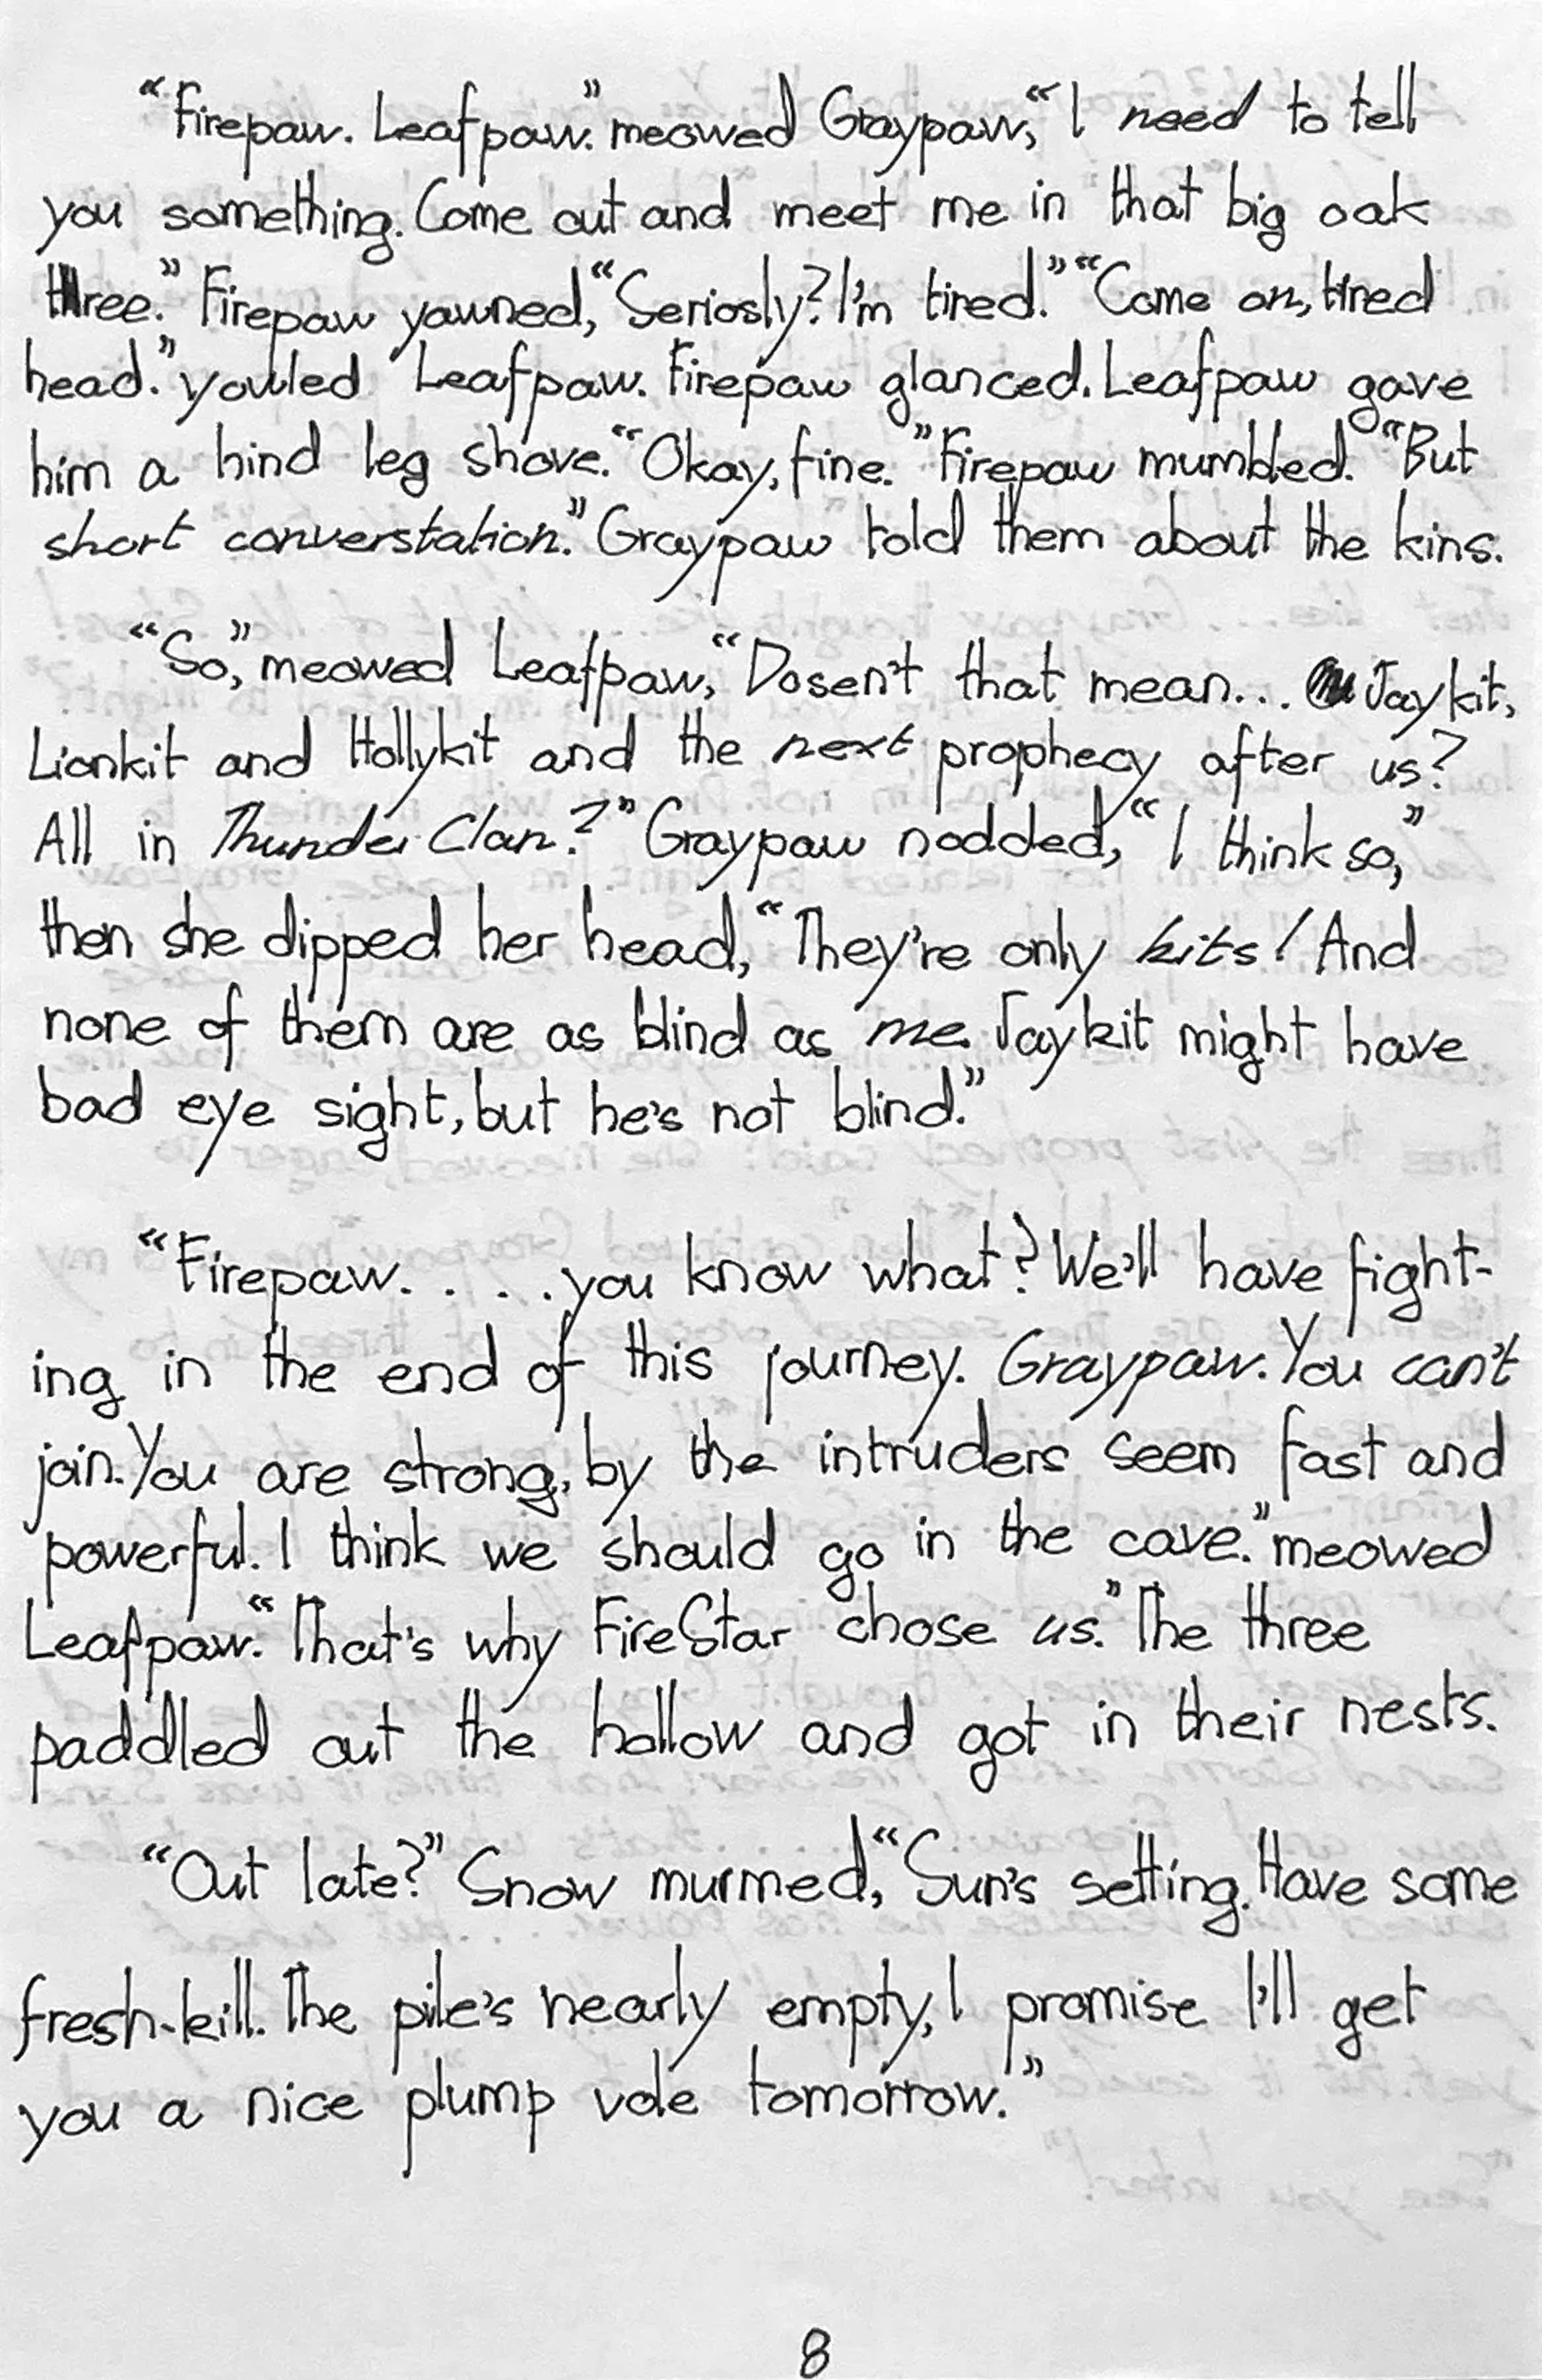 “Firepaw. Leafpaw.” meowed Graypaw, “I need to tell
you something. Come out and meet me in that big oak
three.” Firepaw yawned, “Seriosly? I'm tired.” “Come on, tired
head.” youled Leafpaw. Firepaw glanced. Leafpaw gave
him a hind leg shove. “Okay, fine.” Firepaw mumbled. “But
short converstation.” Graypaw told them about the kins.
“So,” meowed Leafpaw, “Dosen't that mean... Jaykit,
Lionkit and Hollykit and the next prophecy after us?
All in ThunderClan?” Graypaw nodded, “I think so,”
then she dipped her head, “They're only kits! And
none of them are as blind as me. Jaykit might have
bad eye sight, but he's not blind.”
“Firepaw. . . . .you know what? We'll have fight-
ing in the end of this journey. Graypaw. You can't
join. You are strong, by the intruders seem fast and
powerful. I think we should go in the cave.” meowed
Leafpaw. “That's why FireStar chose us.” The three
paddled out the hollow and got in their nests.
“Out late?” Snow murmed, “Sun's setting. Have some
fresh-kill. The pile's nearly empty, I promise I'll get
you a nice plump vole tomorrow.”
8